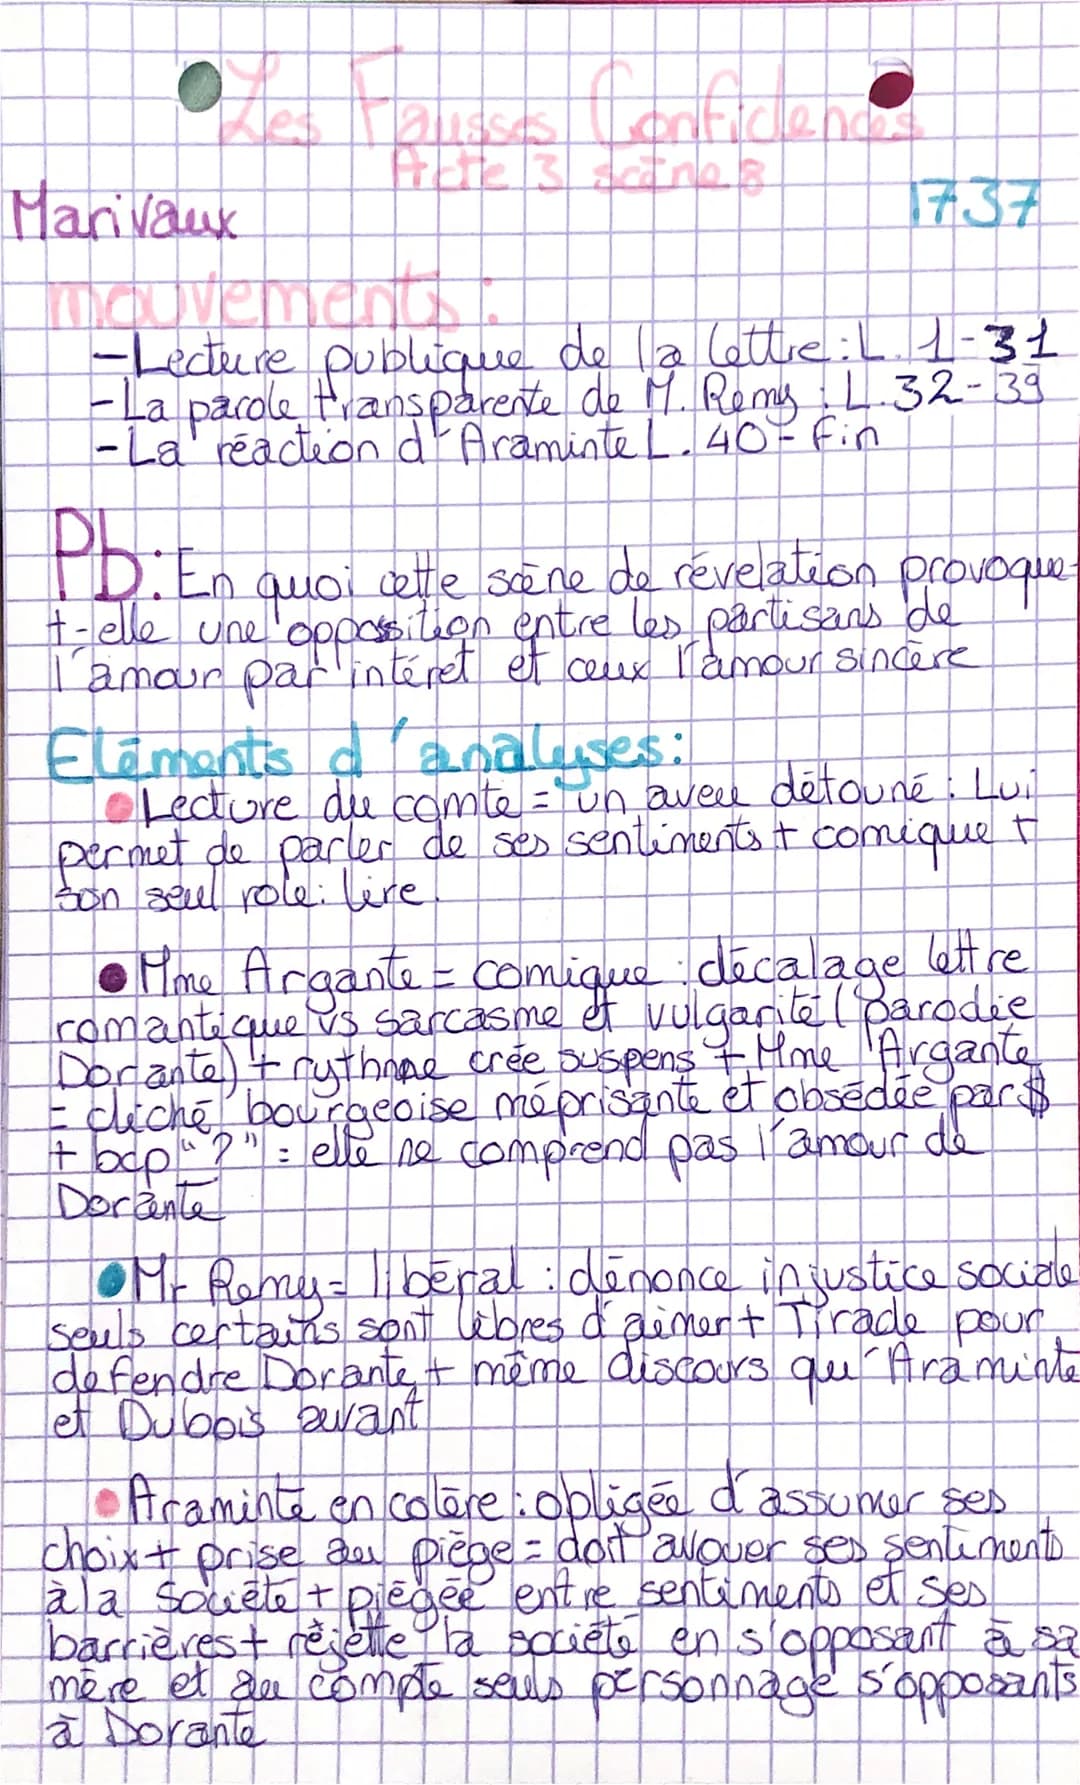 Les Fausses Confidences
Acte 3 scène 8
Marivaux 1737
mouvements :
-Lecture publique de la lettre : L. 1-31
-La parole transparente de M. Remy : L.32-39
-La réaction d'Araminte L. 40- fin
Pb: En quoi cette scène de révelation provoque-
t-elle une oppossition entre les partisans de
l'amour par intéret et ceux l'amour sincère
Eléments d'analyses:
Lecture du comte = un aveu détouné : Lui
permet de parler de ses sentiments + comique +
son seul role: lire.
Mme Argante = comique : décalage lettre
romantique vs sarcasme et vulgarité (parodie
Dorante) + rythme crée suspens + Mme Argante
= cliché bourgeoise méprisante et obsédée par $
+ bcp "?" : elle ne comprend pas l'amour de
Dorante
Mr Remy = libéral : dénonce injustice sociale
seuls certains sont libres d'aimer + Tirade pour
defendre Dorante + même discours qu'Araminte
et Dubois avant
Araminte en colère : obligée d'assumer ses
choix + prise au piège = doit avouer ses sentiments
à la société + piégée entre sentiments et ses
barrières + rejette la société en s'opposant à sa
mère et au compte seuls personnage s'opposants
à Dorante